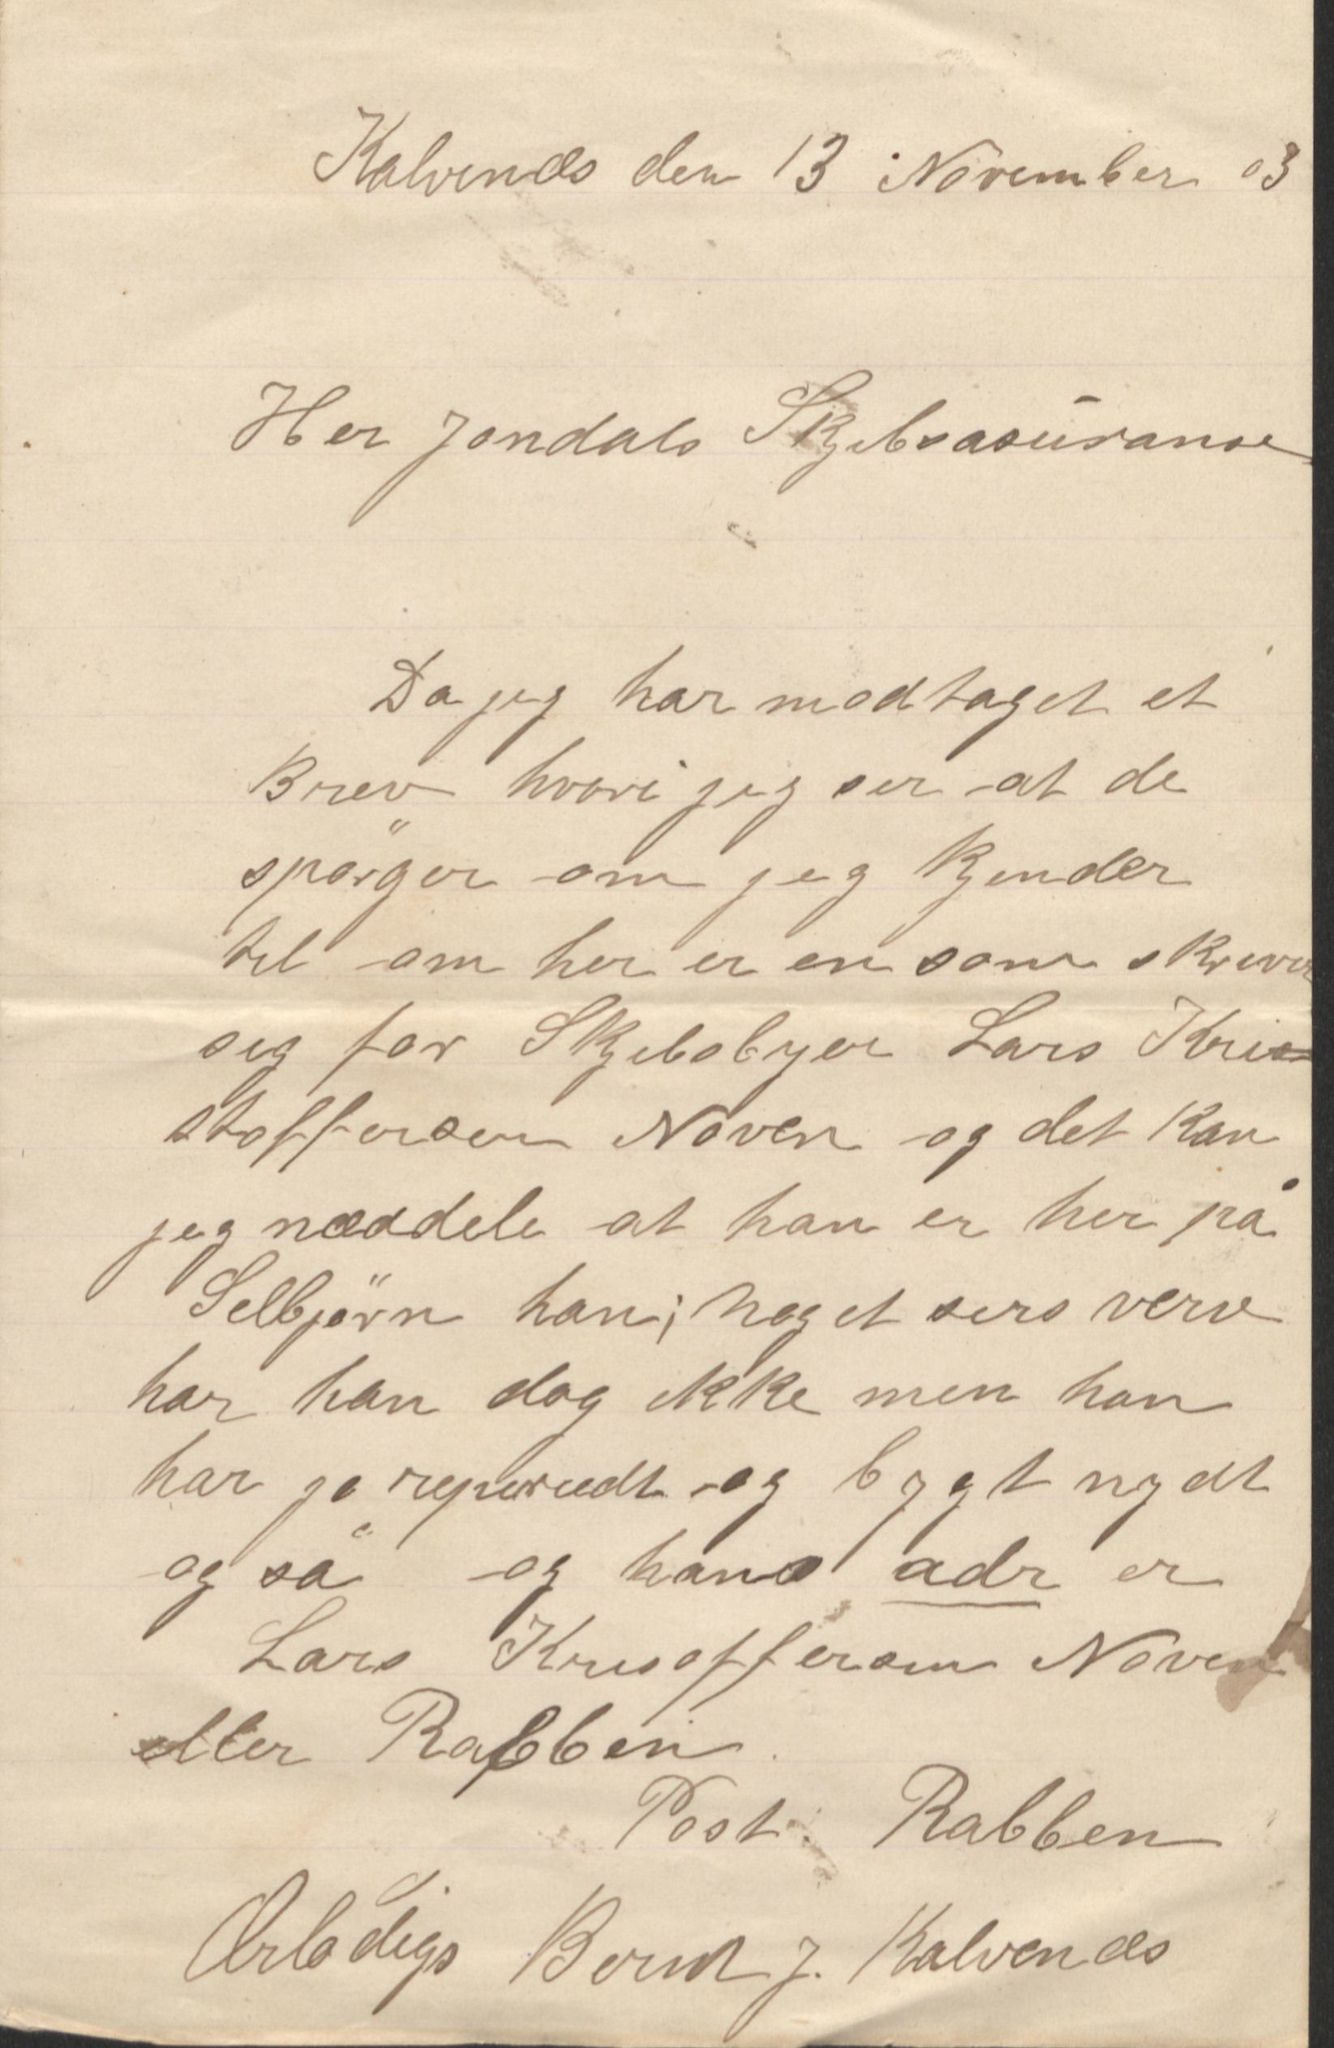 Kalvenæs den 13 November 03
Her Jondals Skjibsasuranse
Da jeg har modtaget et
Brev hvori jeg ser at de
spørger om jeg kjender
til om her er en som skriver
seg for Skjibsbyer Lars Kris=
stoffersen Noven og det kan
jeg mæddele at han er her på
Selbjørn han; noget sers verv
har han dog ikke men han
har jo repereedt og bygt nydt
og så og hans adr er
Lars Krisoffersen Noven
eller Rabben
Post. Rabben
Ærbødigs Bernt J. Kalvenæs